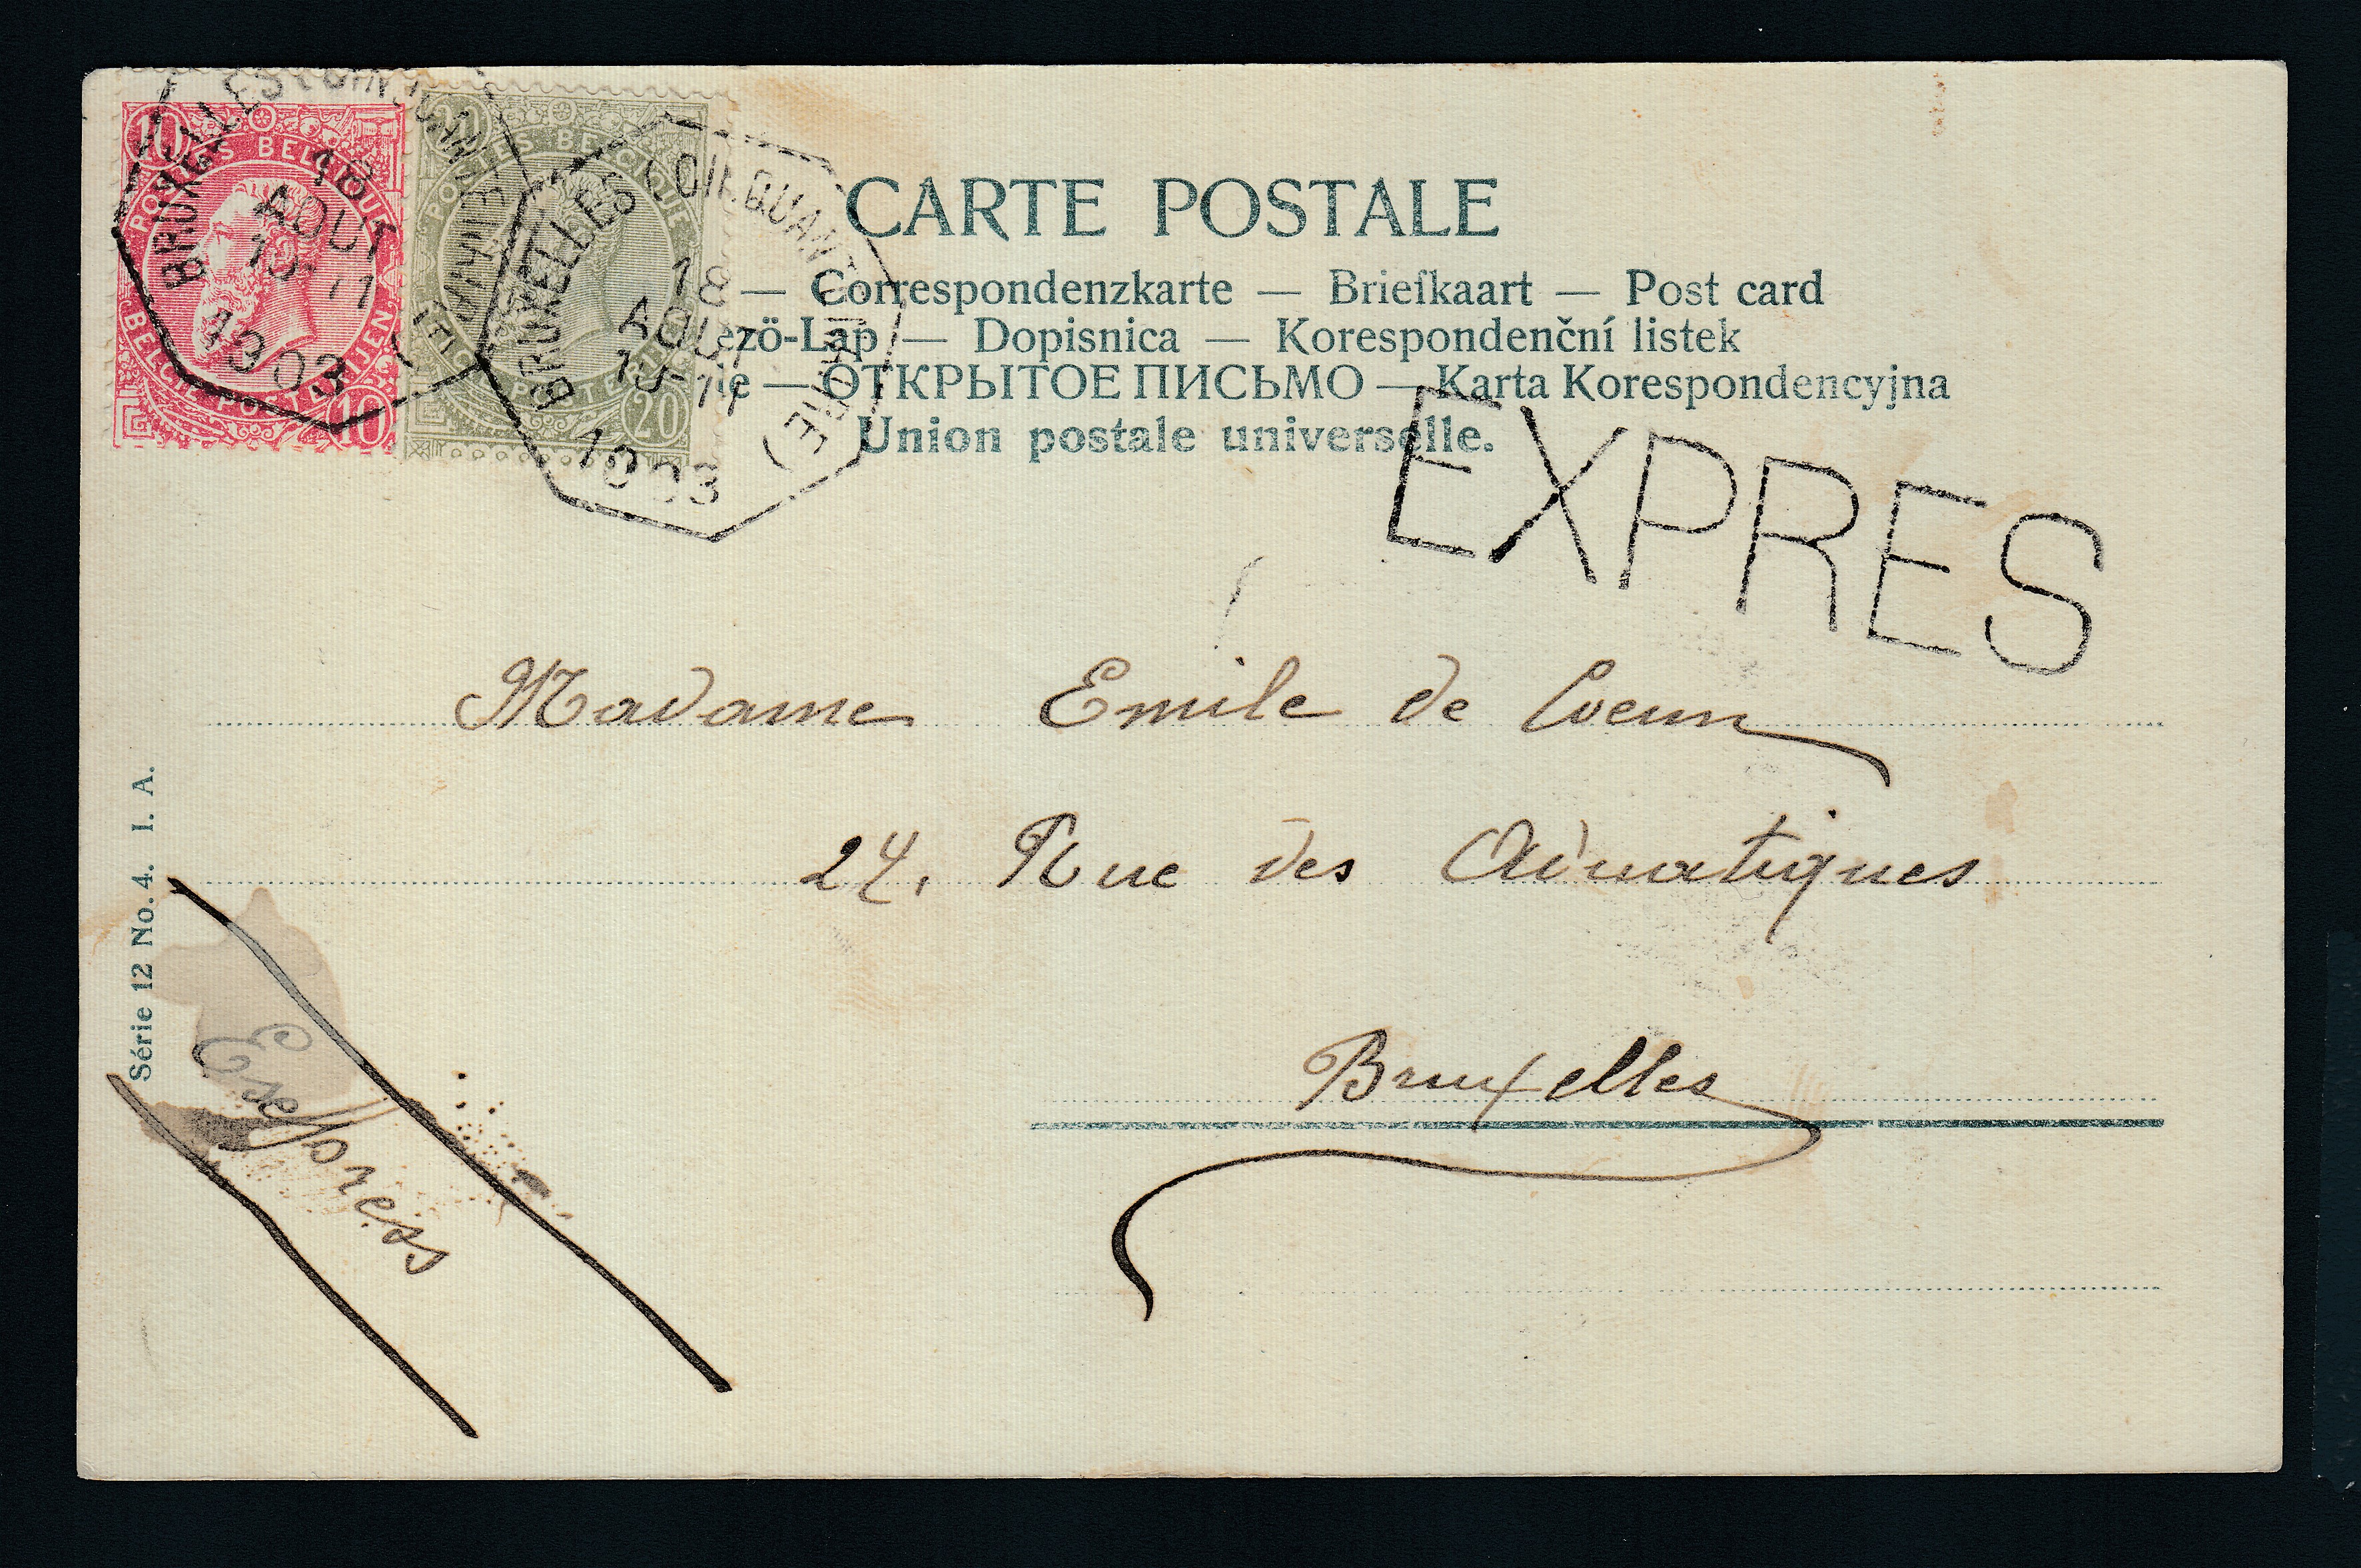 CARTE POSTALE
— Correspondenzkarte — Briefkaart — Post card
ezö-Lap — Dopisnica — Korespondenční listek
ie — ОТКРЫТОЕ ПИСЬМО — Karta Korespondencyjna
Union postale universelle.
10 POSTES BELGIQUE
BELGIE POSTERIJEN 10
20 POSTES BELGIQUE
20
BRUXELLES (CINQUANTENAIRE)
18
AOUT
15-11
1903
BRUXELLES (CINQUANTENAIRE)
18
AOUT
15-11
1903
EXPRES
Madame Emile de
24, Rue des
Bruxelles
Série 12 No. 4. I. A.
Express